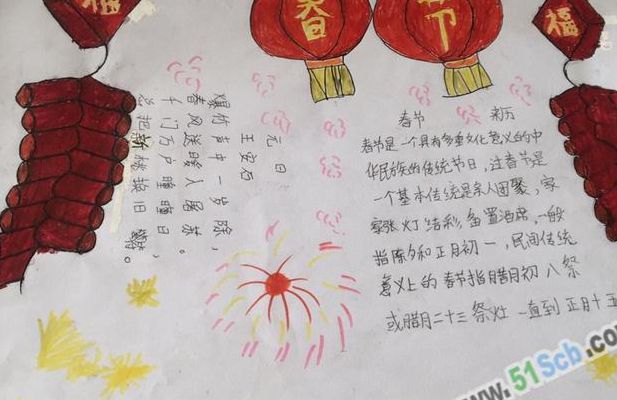 福
春
节
福
元日
王安石
爆竹声中一岁除，
春风送暖入屠苏。
千门万户曈曈日，
总把新桃换旧
春节 来历
春节是一个具有多重文化意义的中
华民族的传统节日，过春节是
一个基本传统是亲人团聚，家
家张灯结彩，备置酒席，一般
指除夕和正月初一，民间传统
意义上的春节指腊月初八祭
或腊月二十三祭灶一直到正月十五
www.51Scb.com